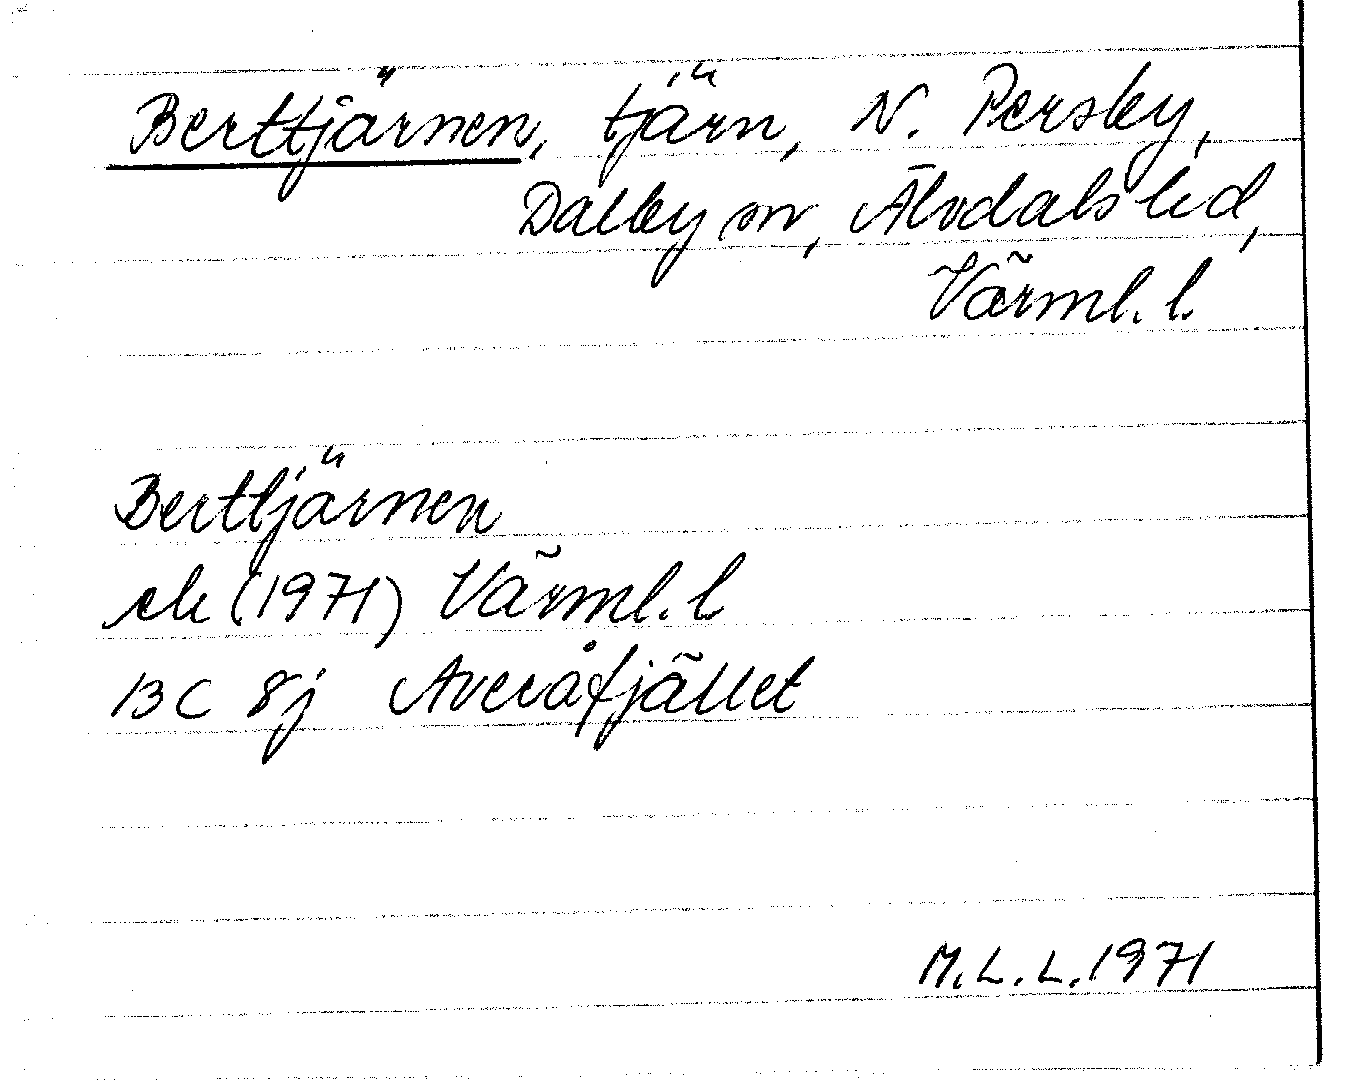 Berttjärnen, tjärn, N. Persby,
Dalby sn, Älvdals hd,
Värml. l.
Berttjärnen
ek (1971) Värml. l
13 C 8j Averåfjället
M.L.L. 1971